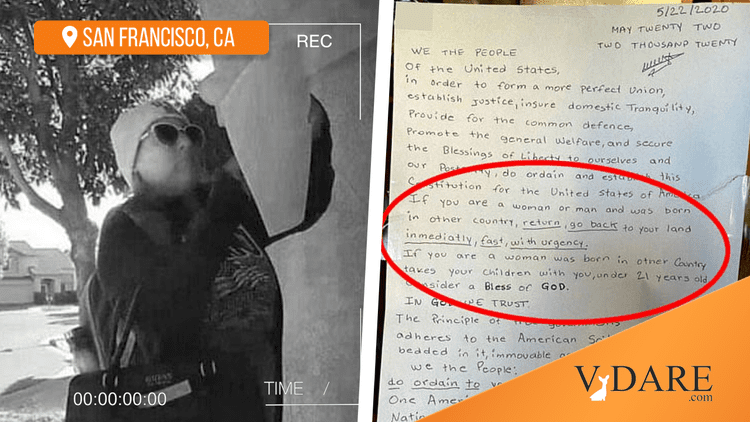 SAN FRANCISCO, CA
REC
GUESS
00:00:00:00
TIME /
5/22/2020
MAY TWENTY TWO
TWO THOUSAND TWENTY
WE THE PEOPLE
Of the United States,
in order to form a more perfect Union,
establish Justice, insure domestic Tranquility,
Provide for the common defence,
Promote the general Welfare, and secure
the Blessings of Liberty to ourselves and
our Posterity, do ordain and establish this
Constitution for the United States of America
If you are a woman or man and was born
in other country, return, go back to your land
inmediatly, fast, with urgency.
If you are a woman was born in other Country
takes your children with you, under 21 years old
Consider a Bless of GOD.
IN GOD WE TRUST.
The Principle of
adheres to the American
bedded in it, immovable
we the People:
do ordain to
One America
VDARE
.com